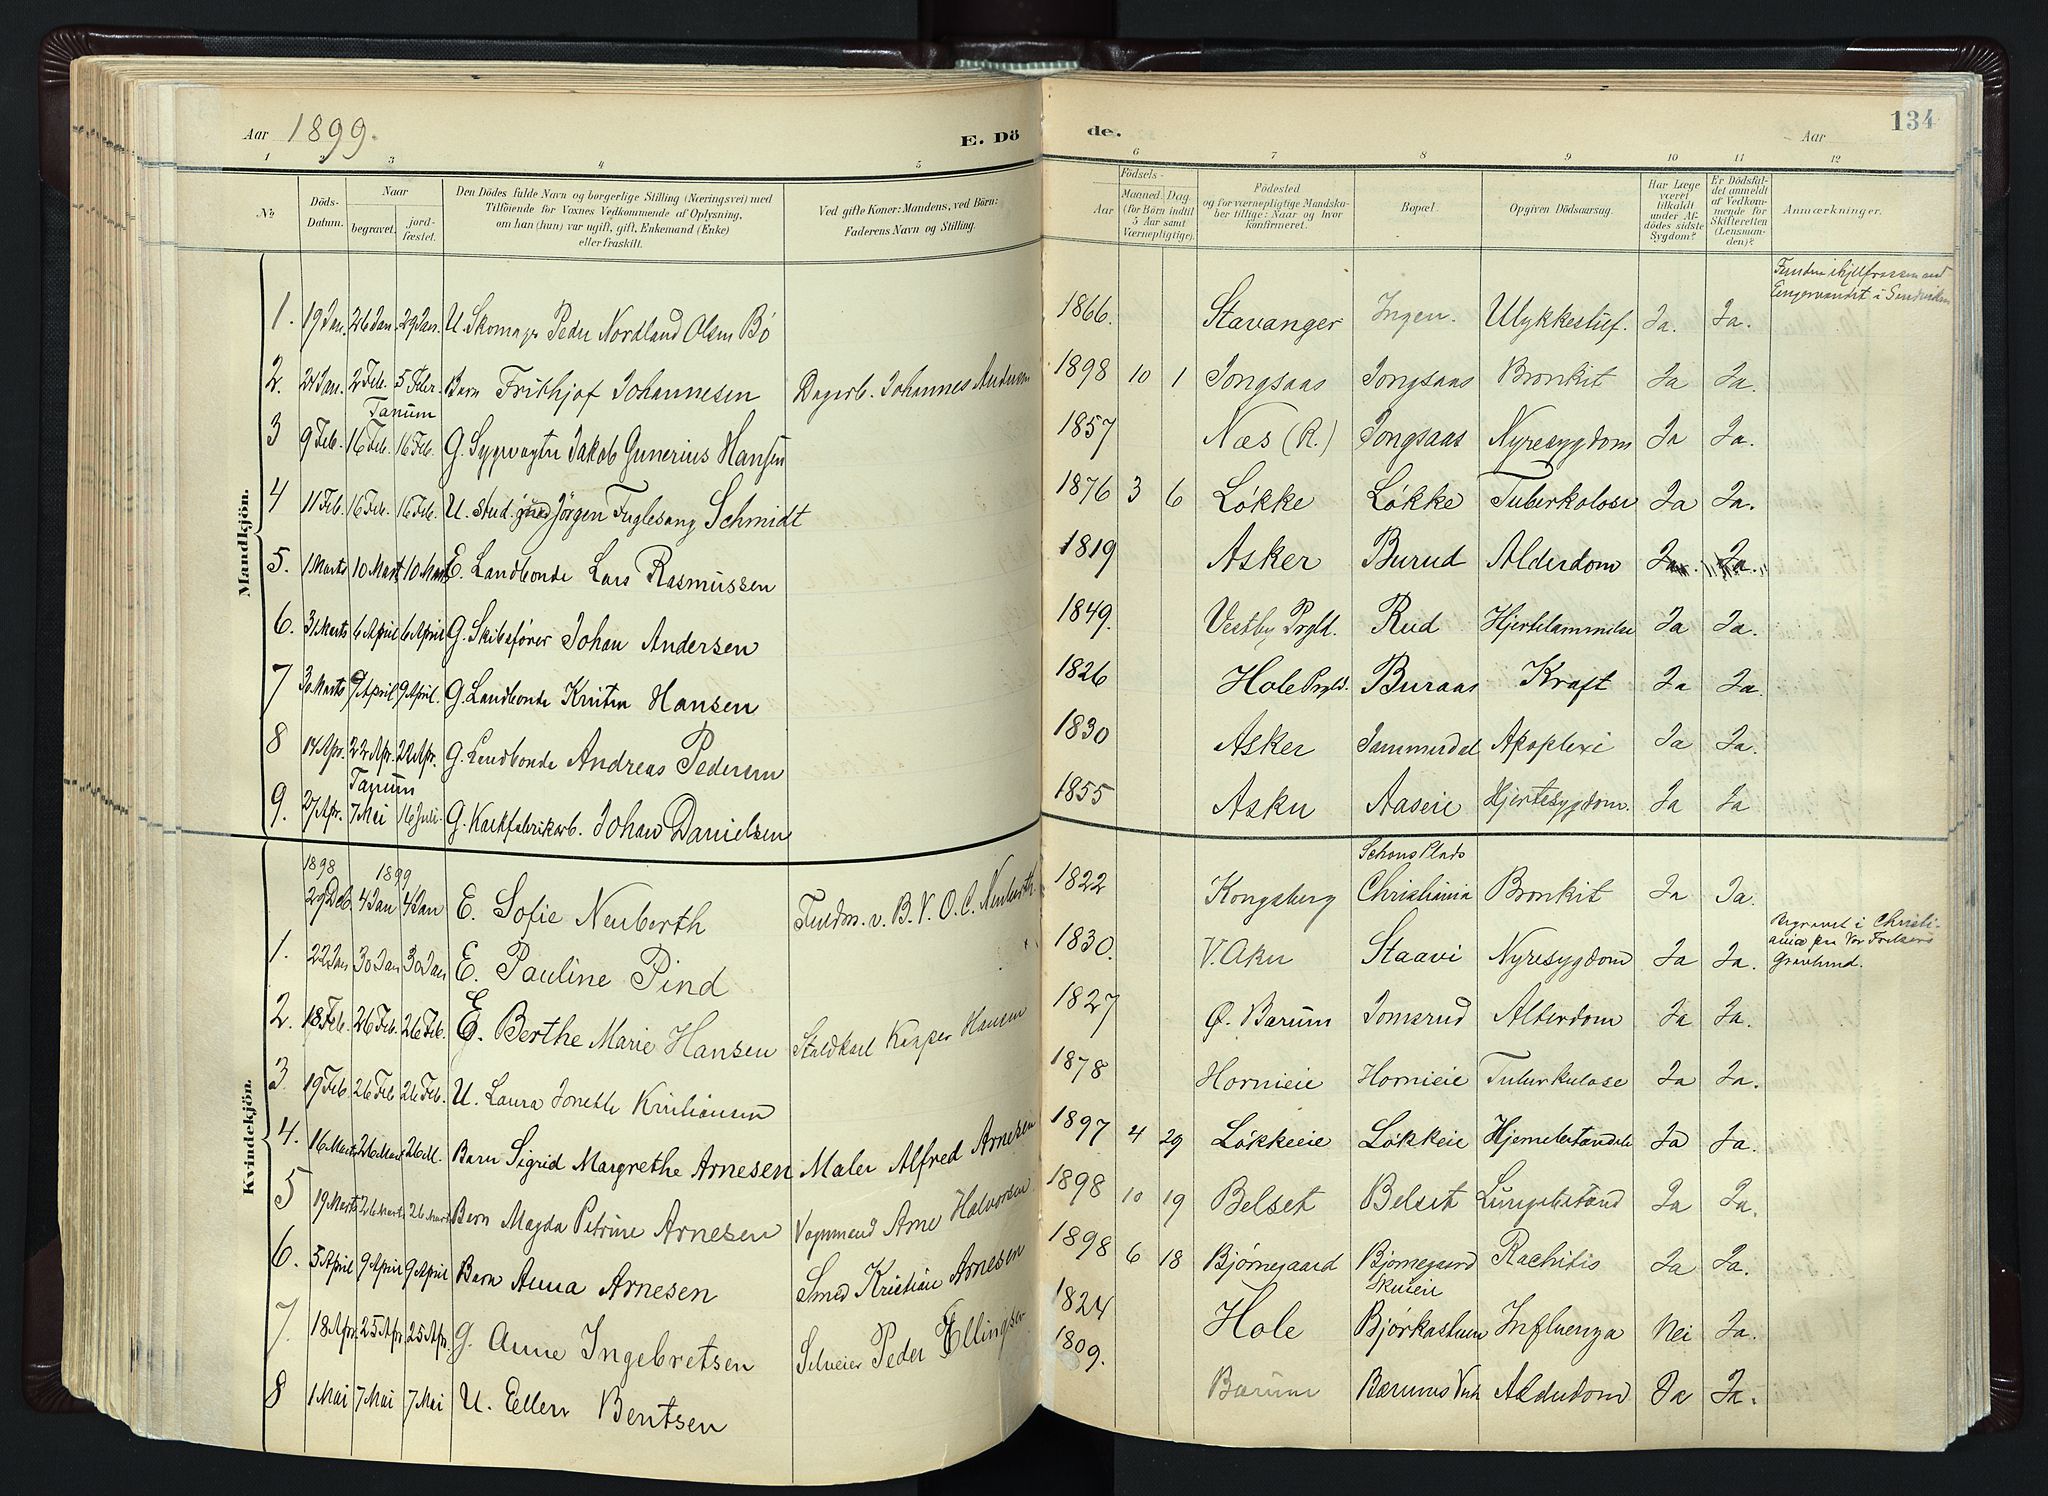 Aar 1899. E. Dö de. Aar 134
1 2 3 4 5 6 7 8 9 10 11 12
№
Döds-Datum.
Naar
begravet.
jord-fæstet.
Den Dödes fulde Navn og borgerlige Stilling (Næringsvei) med
Tilföiende for Voxnes Vedkommende af Oplysning,
om han (hun) var ugift, gift, Enkemand (Enke)
eller fraskilt.
Ved gifte Koner: Mandens, ved Börn:
Faderens Navn og Stilling.
Födsels-
Aar
Maaned
Dag
(for Börn indtil
5 Aar samt
Værnepligtige).
Födested
og for værnepligtige Mandska-
ber tillige: Naar og hvor
konfirmeret.
Bopæl.
Opgiven Dödsaarsag.
Har Læge
været
tilkaldt
under Af-
dödes sidste
Sygdom?
Er Dödsfal-
det anmeldt
af Vedkom-
mende for
Skifteretten
(Lensman-
den)?
Anmærkninger.
Mandkjön.
1. 19 Jan. 26 Jan 29 Jan. U. Skomagr Peder Nordland Olsen Bö 1866. Stavanger Ingen. Ulykkestilf. Ja. Ja. Funden ihjelfrossen ved
Engervandet i Sandviken
2. 24 Jan. 2 Feb. 5 Febr. Barn Frithjof Johannesen Dagarb. Johannes Andersen 1898 10 1 Jongsaas Jongsaas Bronkit Ja Ja.
Tanum
3 9 Feb. 16 Feb. 16 Feb. G. Sygevagter Jakob Gunerius Hansen 1857 Næs (R.) Jongsaas Nyresygdom Ja Ja.
4 11 Feb. 16 Feb. 16 Feb. U. stud. Jörgen Fuglesang Schmidt 1876 3 6 Løkke Løkke Tuberkolose Ja Ja.
5. 1 Marts 10 Mart 10 Mart E. Landbonde Lars Rasmussen 1819 Asker Burud Alderdom Ja. Ja.
6. 31 Marts 6 April 6 April G. Skibsfører Johan Andersen 1849. Vestby Prgld. Rud Hjertelammelse Ja Ja.
7 30 Marts 9 April 9 April. G. Landbonde Kristen Hansen 1826 Hole Prgld. Buraas Kraft Ja Ja.
8 14 Apr. 22 Apr. 22 Apr. G. Landbonde Andreas Pedersen 1830 Asker Jammerdal Apoplexi Ja Ja.
Tanum
9. 27 Apr. 7 Mai 16 Juli. G. Kalkfabrikarb. Johan Danielsen 1855 Asker Aaseie Hjertesygdom. Ja Ja
Kvindekjön.
1898 1899 Schous Plads
29 Deb 4 Jan 4 Jan E. Sofie Neuberth Fuldm. v. B. V. O. C. Neuberth 1822 Kongsberg Christiania Bronkit Ja Ja.
1. 22 Jan 30 Jan 30 Jan E. Pauline Pind 1830. V. Aker Staavi Nyresygdom Ja Ja. Begravet i Christi-
ania paa Vor Frelsers
Gravlund.
2. 18 Feb. 26 Feb. 26 Feb. G. Berthe Marie Hansen Staldkarl Kasper Hansen 1827 Ø. Bærum Jomsrud Alderdom Ja Ja.
3 19 Feb. 26 Feb 26 Feb. U. Laura Jonette Kristiansen 1878 Hornieie Hornieie Tuberkulose Ja Ja.
4. 16 Marts 26 Mart 26 M. Barn Sigrid Margrethe Arnesen Maler Alfred Arnesen 1897 4 29 Løkkeeie Løkkeie Hjernebetændelse Ja Ja.
5 19 Marts 26 Marts 26 Mart Barn Magda Petrine Arnesen Vognmand Arne Halvorsen 1898 10 19 Belset Belset Lungebetænd Ja Ja.
6. 5 April 9 April 9 April Barn Anna Arnesen Smed Kristian Arnesen 1898 6 18 Bjørnegaard Bjørnegaard Rachitis Ja Ja.
Skuien
7. 18 Apr. 25 Apr. 25 Apr. G. Anne Ingebretsen Selveier Peder Ellingsen 1824 Hole Bjørkastuen Influenza Nei Ja.
8 1 Mai 7 Mai 7 Mai U. Ellen Bentsen 1809. Bærum Bærums Verk Alderdom Ja Ja.